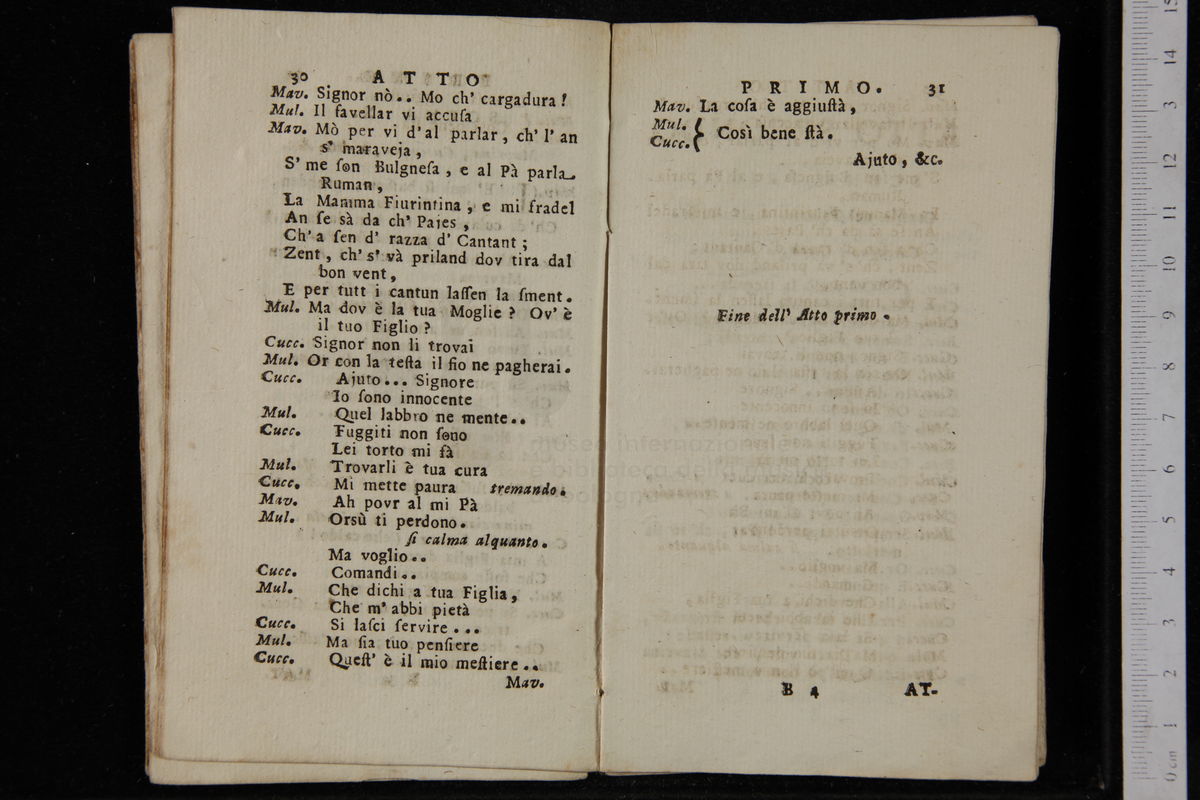 30 ATTO
Mav. Signor nò.. Mo ch' cargadura!
Mul. Il favellar vi accuſa
Mav. Mò per vi d'al parlar, ch' l' an
s' maraveja,
S' me ſon Bulgneſa, e al Pà parla
Ruman,
La Mamma Fiurintina, e mi fradel
An ſe sà da ch' Pajes,
Ch' a ſen d' razza d' Cantant;
Zent, ch' s' và priland dov tira dal
bon vent,
E per tutt i cantun laſſen la ſment.
Mul. Ma dov è la tua Moglie? Ov' è
il tuo Figlio?
Cucc. Signor non li trovai
Mul. Or con la teſta il fio ne pagherai.
Cucc. Ajuto... Signore
Io ſono innocente
Mul. Quel labbro ne mente..
Cucc. Fuggiti non ſono
Lei torto mi fà
Mul. Trovarli è tua cura
Cucc. Mi mette paura tremando.
Mav. Ah povr al mi Pà
Mul. Orsù ti perdono.
ſi calma alquanto.
Ma voglio..
Cucc. Comandi..
Mul. Che dichi a tua Figlia,
Che m' abbi pietà
Cucc. Si laſci ſervire...
Mul. Ma ſia tuo penſiere
Cucc. Queſt' è il mio meſtiere..
Mav.
PRIMO. 31
Mav. La coſa è aggiuſtà,
Mul. } Così bene ſtà.
Cucc.
Ajuto, &c.
Fine dell' Atto primo.
B 4 AT-
museo internazionale
e biblioteca della musica
di bologna
0 cm 1 2 3 4 5 6 7 8 9 10 11 12 13 14 15